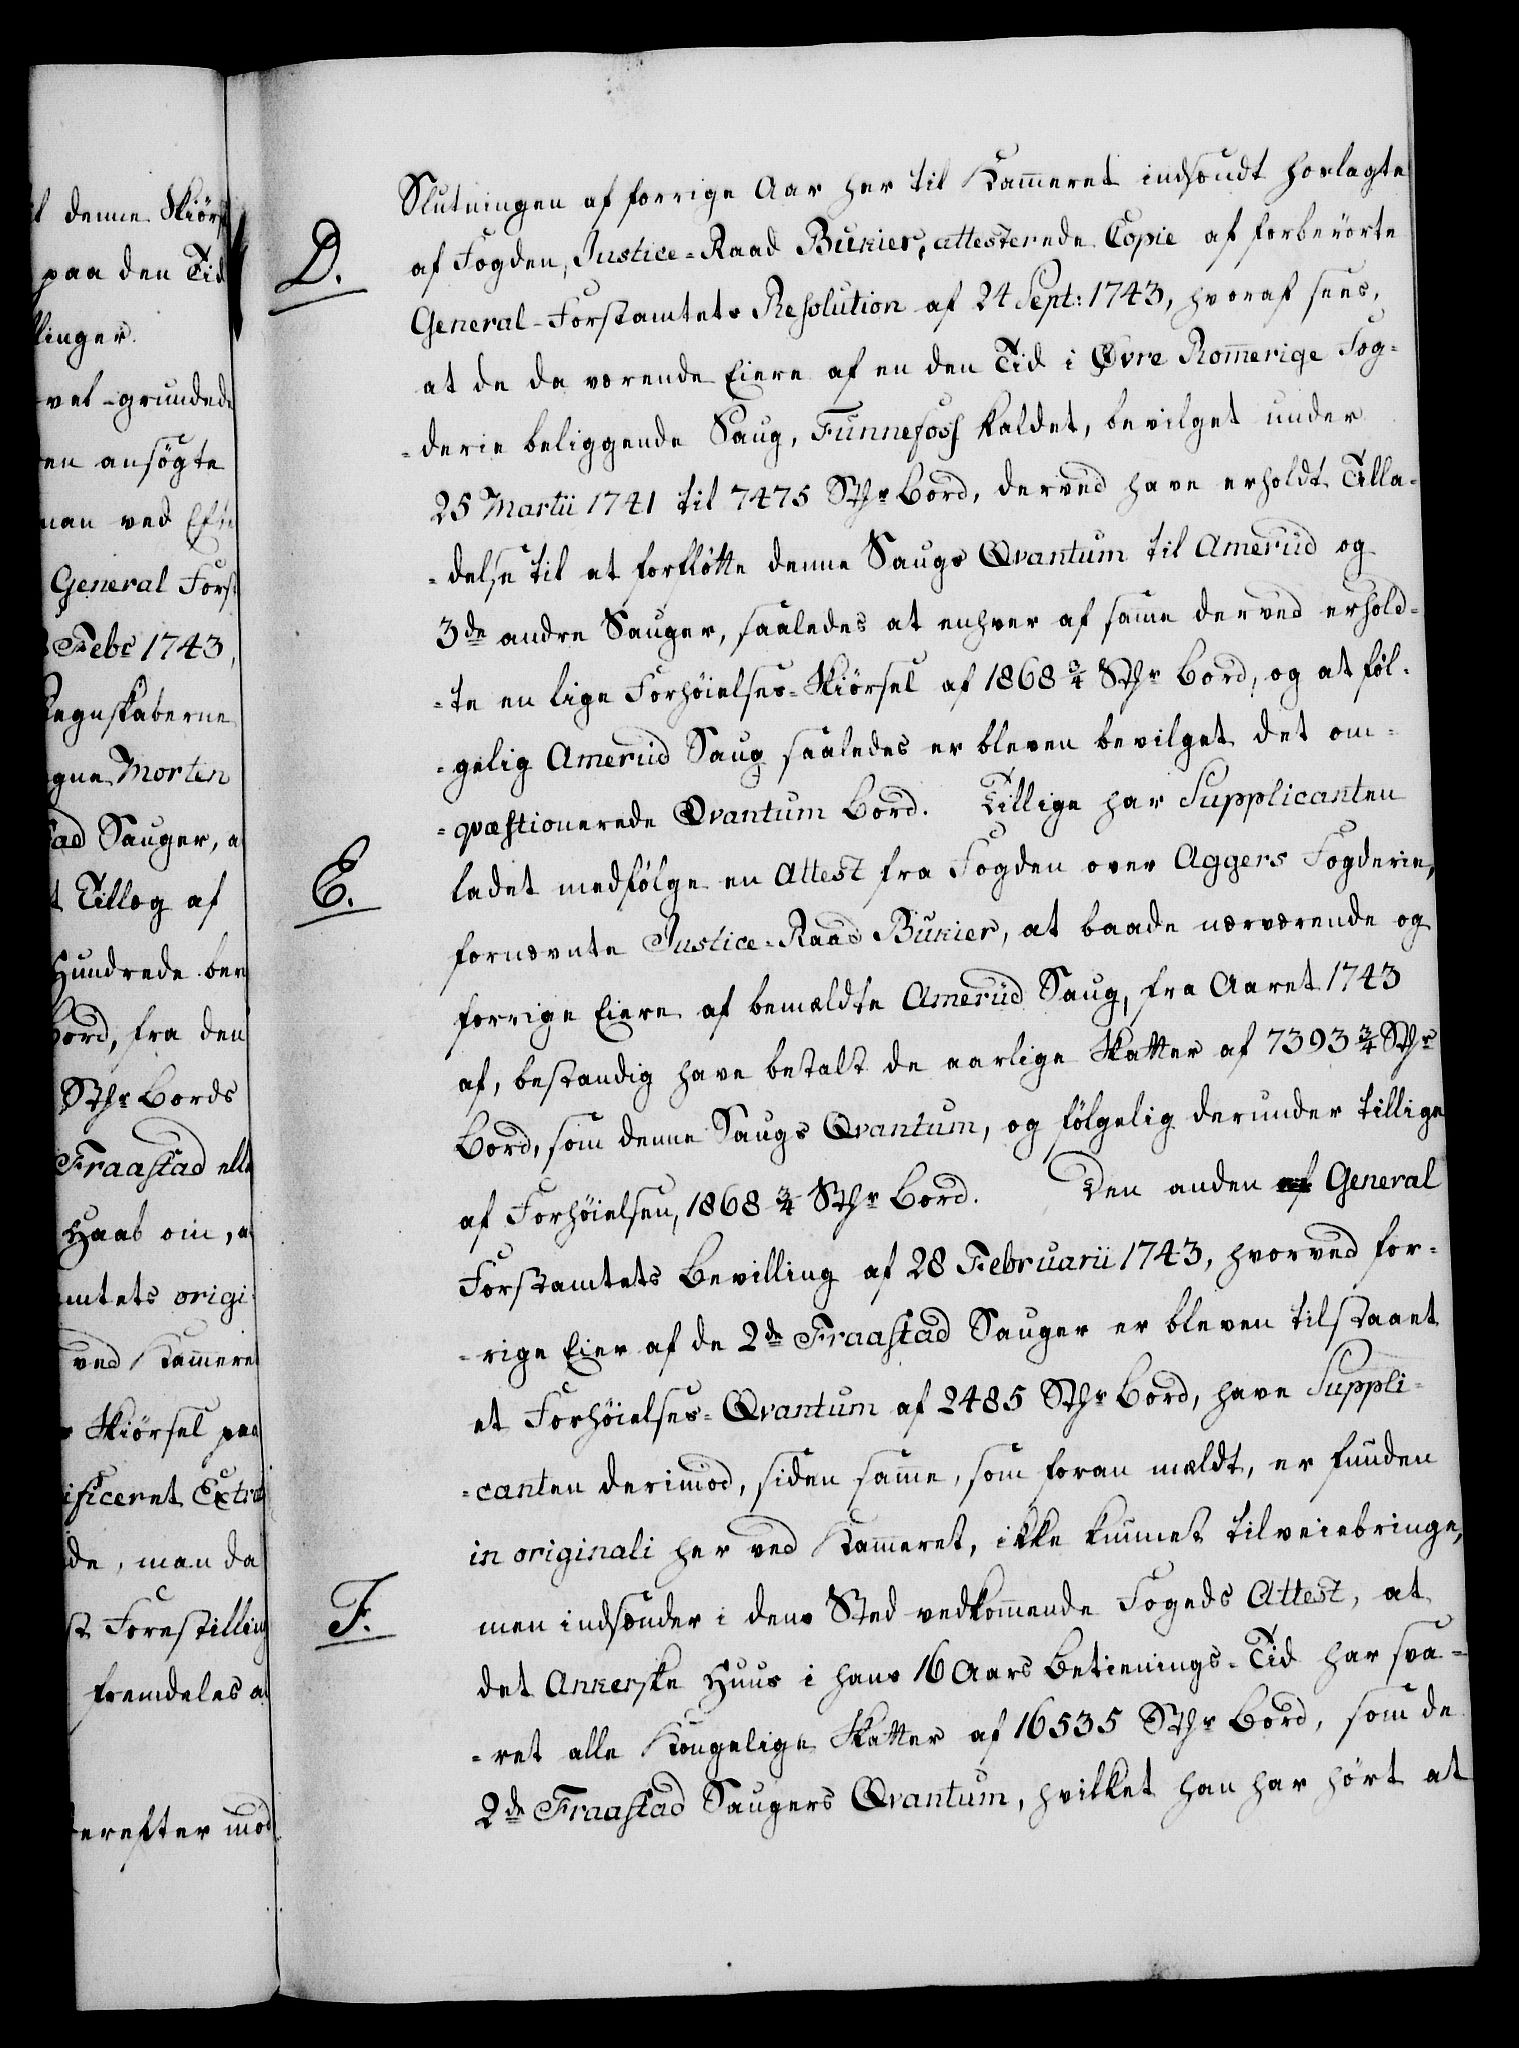 t denne Skiørs
paa den Tid
linger.
vel-grundede
en ansøgte
man ved Efte
General Forst
Febr 1743,
Regnskaberne
gne Morten
ad Sauger, a
t Tillæg af
Hundrede ber
Bord, fra den
Stkr Bords
Fraastad elle
Haab om, a
mtets origi
ved Kammeret
Skiørsel paa
ificeret Extra
de, man da
st Forestilling
fremdeles a
erefter mod
Slutningen af forrige Aar her til Kammeret indsendt forlagte
D.
af Fogden, Justice-Raad Bukier, attesterede Copie af forberørte
General-Forstamtets Resolution af 24 Sept: 1743, hvoraf sees,
at de da værende Eiere af en den Tid i Øvre Rommerige Fog-
-derie beliggende Saug, Funnefoss kaldet, bevilget under
25 Martii 1741 til 7475 Stkr Bord, derved have erholdt Tilla-
-delse til at forfløtte denne Saugs Qvantum til Amerud og
3de andre Sauger, saaledes at enhver af samme derved erhold-
-te en lige Forhøielses-Skiørsel af 1868 3/4 Stkr Bord, og at føl-
-gelig Amerud Saug saaledes er bleven bevilget det om-
-qvæstionerede Qvantum Bord. Tillige har Supplicanten
E.
ladet medfølge en Attest fra Fogden over Aggers Fogderie,
fornævnte Justice-Raad Bukier, at baade nærværende og
forrige Eiere af bemældte Amerud Saug, fra Aaret 1743
af, bestandig have betalt de aarlige Skatter af 7393 3/4 Stkr
Bord, som denne Saugs Qvantum, og følgelig derunder tillige
af Forhøielsen, 1868 3/4 Stkr Bord. Den anden af General
Forstamtets Bevilling af 28 Februarii 1743, hvorved for-
-rige Eier af de 2de Fraastad Sauger er bleven tilstaaet
et Forhøielses-Qvantum af 2485 Stkr Bord, have Suppli-
-canten derimod, siden samme, som foran mældt, er funden
in originali her ved Kammeret, ikke kunnet tilveiebringe,
F.
men indsender i dens Sted vedkommende Fogeds Attest, at
det Ankerske Huus i hans 16 Aars Betienings-Tid har sva-
-ret alle Kongelige Skatter af 16535 Stkr Bord, som de
2de Fraastad Saugers Qvantum, hvilket han har hørt at